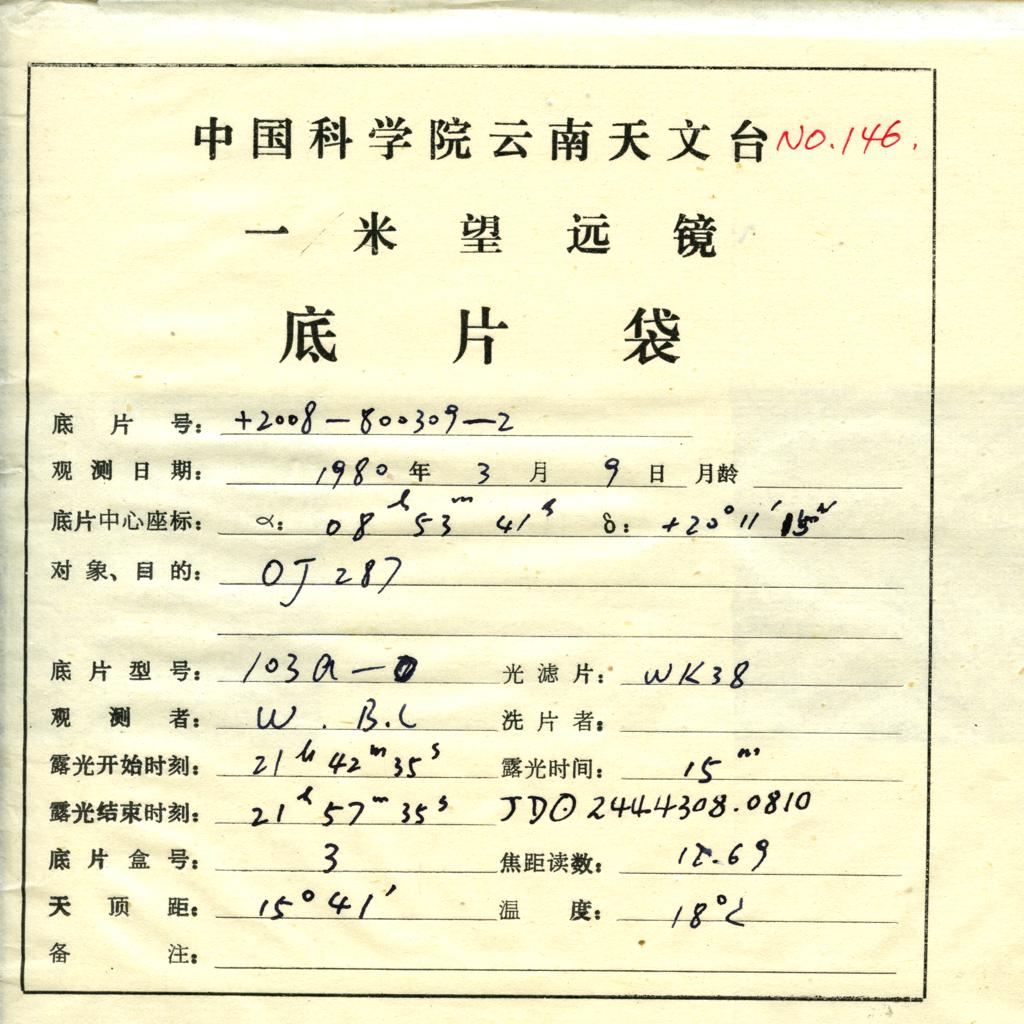 中国科学院云南天文台 NO.146.
一米望远镜
底片袋
底片号: +2008-800309-2
观测日期: 1980年 3月 9日 月龄
底片中心座标: α: 08h 53m 41s δ: +20° 11′
对象、目的: OJ 287
底片型号: 103a-O 光滤片: WK38
观测者: W. B.L 洗片者:
露光开始时刻: 21h 42m 35s 露光时间: 15m
露光结束时刻: 21h 57m 35s JD⊙ 2444308.0810
底片盒号: 3 焦距读数: 12.69
天顶距: 15° 41′ 温度: 18°C
备注: